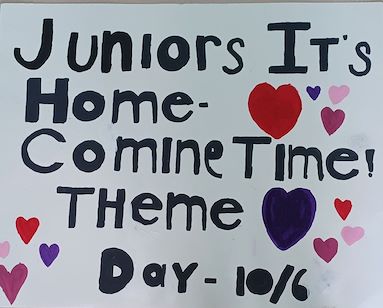 Juniors It's
Home-
Coming Time!
Theme
Day - 10/6